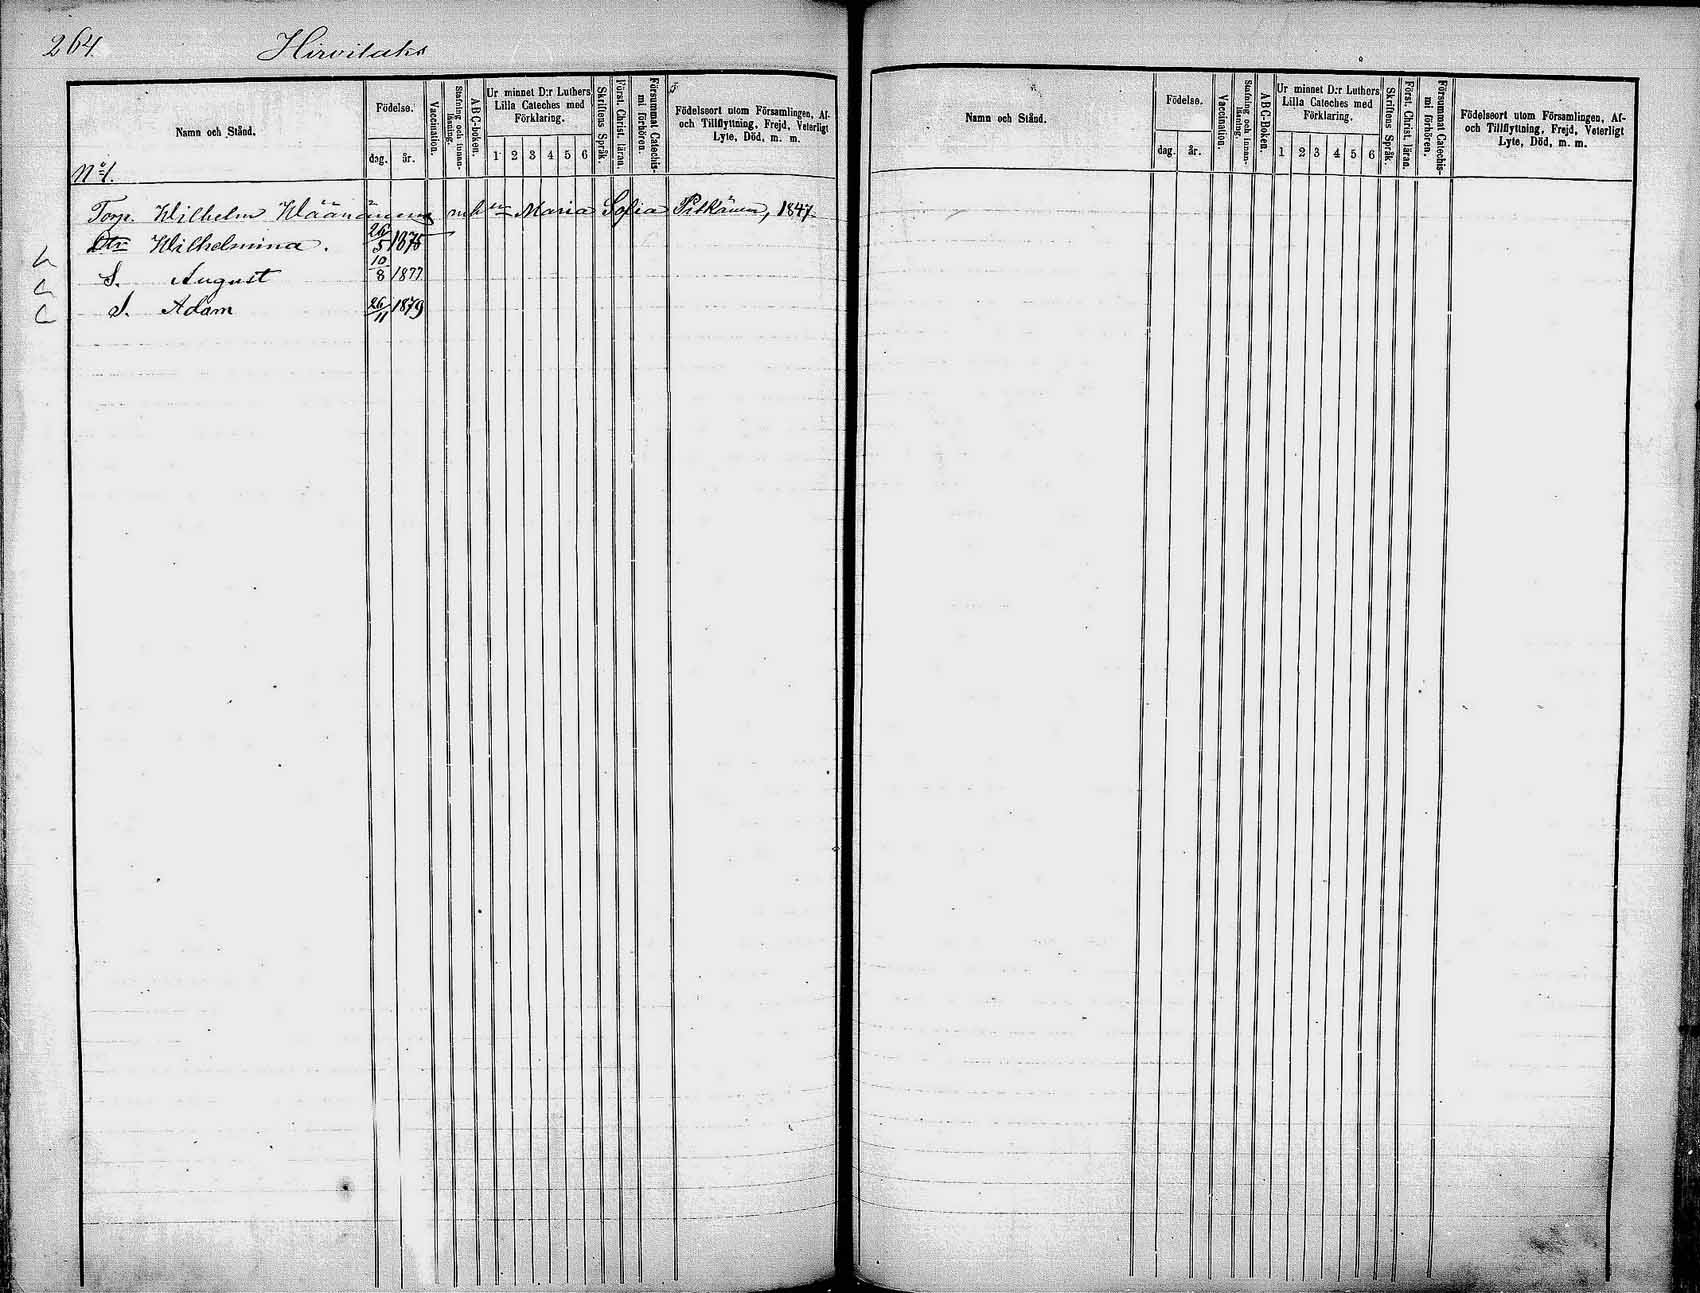 264. Hirvilaks
Namn och Stånd.
Födelse.
dag. år.
Vaccination.
Stafning och innan-läsning.
ABC-boken.
Ur minnet D:r Luthers Lilla Cateches med Förklaring.
1 2 3 4 5 6
Skriftens Språk.
Först. Christ. läran.
Försummat Catechis-mi förhören.
Födelseort utom Församlingen, Af-
och Tillflyttning, Frejd, Veterligt
Lyte, Död, m. m.
No 1.
Torp. Wilhelm Wäänänens Maria Sofia Pitkänen, 1847
Dtr Wilhelmina. 26/5 1875
S. August 10/8 1877
S. Adam 26/11 1879
Namn och Stånd.
Födelse.
dag. år.
Vaccination.
Stafning och innan-läsning.
ABC-Boken.
Ur minnet D:r Luthers Lilla Cateches med Förklaring.
1 2 3 4 5 6
Skriftens Språk.
Först. Christ. läran.
Försummat Catechis-mi förhören.
Födelseort utom Församlingen, Af-
och Tillflyttning, Frejd, Veterligt
Lyte, Död, m. m.